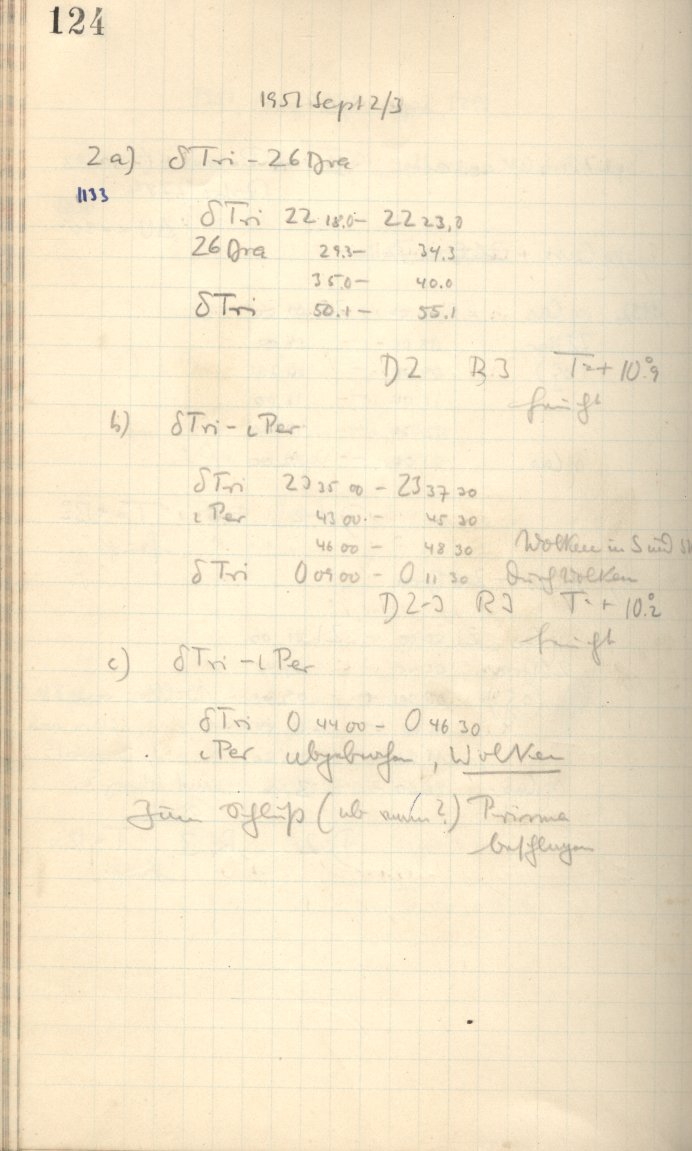 124
1951 Sept 2/3
2 a) δ Tri – 26 Dra
1133
δ Tri 22 18.0 – 22 23,0
26 Dra 29.3 – 34.3
35.0 – 40.0
δ Tri 50.1 – 55.1
D2 R3 T=+10°.9
feucht
b) δ Tri – ι Per
δ Tri 23 35 00 – 23 37 30
ι Per 43 00 – 45 30
46 00 – 48 30 Wolken in S und
δ Tri 0 09 00 – 0 11 30 durch Wolken
D2-3 R3 T=+10°.2
feucht
c) δ Tri – ι Per
δ Tri 0 44 00 – 0 46 30
ι Per abgebrochen, Wolken
Zum Schluß (ab wann?) Prisma
beschlagen